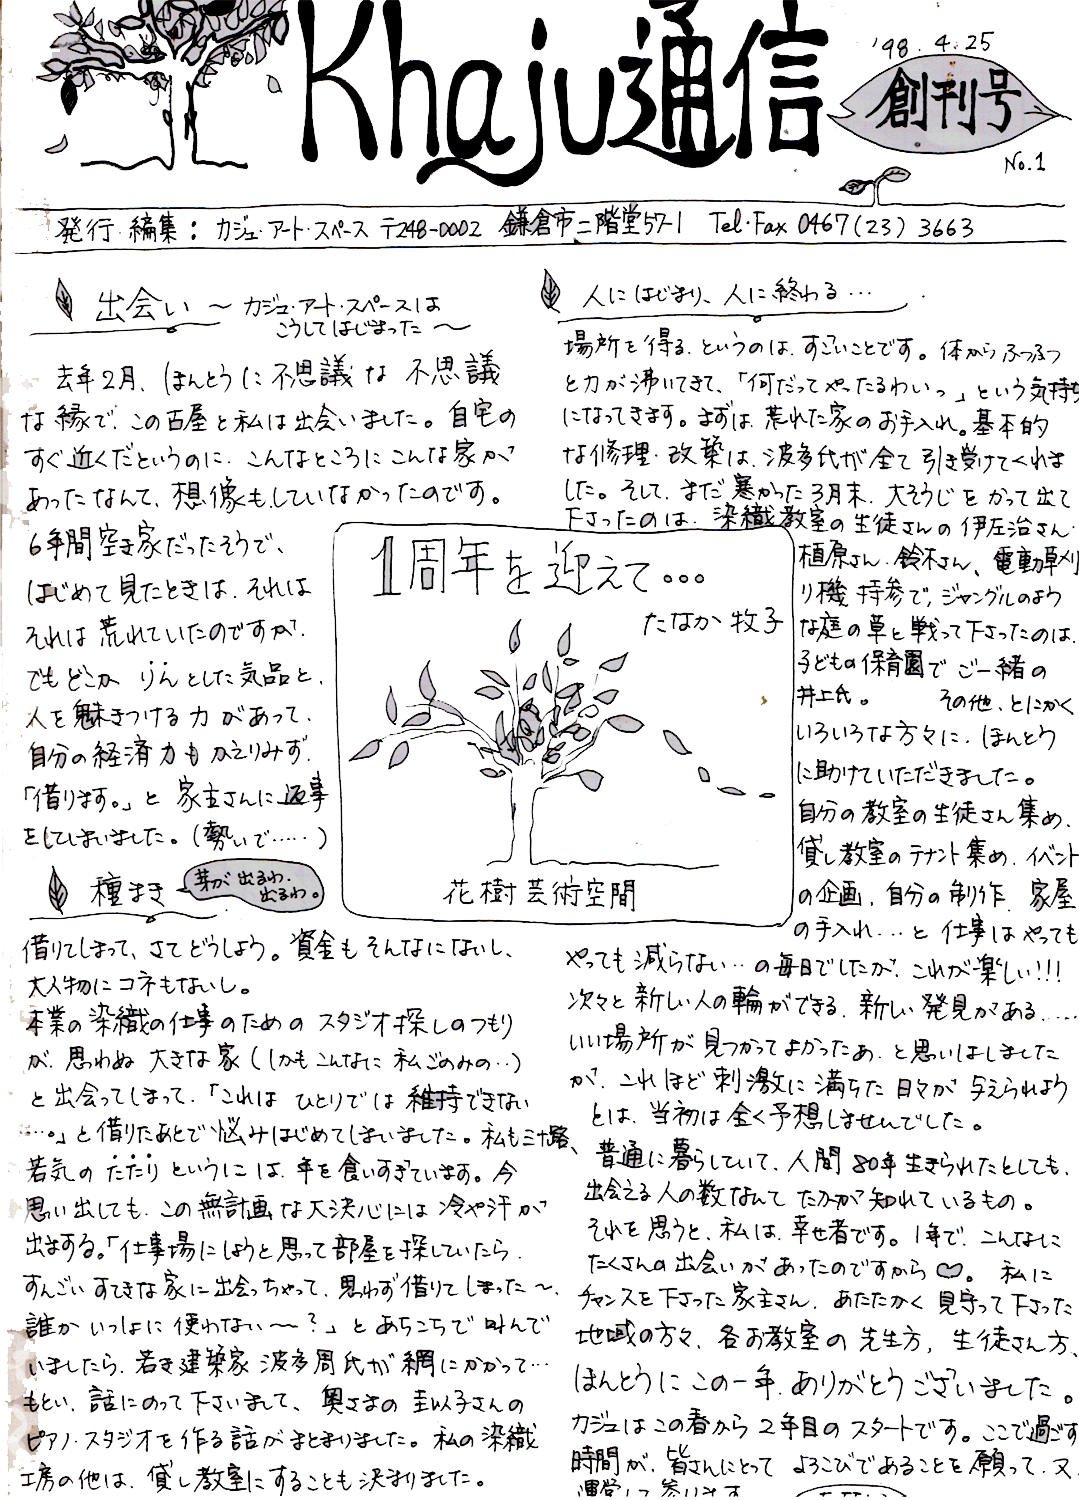 Khaju通信
'98.4.25
創刊号
No.1
発行・編集：カジュ・アート・スペース 〒248-0002 鎌倉市二階堂57-1 Tel・Fax 0467(23)3663
出会い 〜 カジュ・アート・スペースは
こうしてはじまった 〜
去年2月、ほんとうに不思議な不思議
な縁で、この古屋と私は出会いました。自宅の
すぐ近くだというのに、こんなところにこんな家が
あったなんて、想像もしていなかったのです。
6年間空き家だったそうで、
はじめて見たときは、それは
それは荒れていたのですが、
でもどこか りんとした気品と、
人を魅きつける力があって、
自分の経済力もかえりみず、
「借ります。」と家主さんに返事
をしてしまいました。(勢いで……)
種まき
芽が出るわ、
出るわ。
借りてしまって、さてどうしよう。資金もそんなにないし、
大人物にコネもないし。
本業の染織の仕事のためのスタジオ探しのつもり
が、思わぬ大きな家(しかもこんなに私ごのみの…)
と出会ってしまって、「これはひとりでは維持できない
…。」と借りたあとで悩みはじめてしまいました。私も三十路、
若気のたたりというには、年を食いすぎています。今
思い出しても、この無計画な大決心には冷や汗が
出まする。「仕事場にしようと思って部屋を探していたら、
すんごいすてきな家に出会っちゃって、思わず借りてしまった〜、
誰かいっしょに使わない〜？」とあちこちで叫んで
いましたら、若き建築家 波多周氏が網にかかって…
もとい、話にのって下さいまして、奥さまの圭以子さんの
ピアノ・スタジオを作る話がまとまりました。私の染織
工房の他は、貸し教室にすることも決まりました。
1周年を迎えて…
たなか牧子
花樹芸術空間
人にはじまり、人に終わる…
場所を得る、というのは、すごいことです。体からふつふつ
と力が沸いてきて、「何だってやったるわいっ」という気持ち
になってきます。まずは、荒れた家のお手入れ。基本的
な修理・改築は、波多氏が全て引き受けてくれま
した。そして、まだ寒かった3月末、大そうじをかって出て
下さったのは、染織教室の生徒さんの伊左治さん、
植原さん、鈴木さん、電動草刈
り機持参で、ジャングルのよう
な庭の草と戦って下さったのは、
子どもの保育園でご一緒の
井上氏。 その他、とにかく
いろいろな方々に、ほんとう
に助けていただきました。
自分の教室の生徒さん集め、
貸し教室のテナント集め、イベント
の企画、自分の制作、家屋
の手入れ…と仕事はやっても
やっても減らない…の毎日でしたが、これが楽しい!!!
次々と新しい人の輪ができる、新しい発見がある……
いい場所が見つかってよかったあ、と思いはしました
が、これほど刺激に満ちた日々が与えられよう
とは、当初は全く予想しませんでした。
普通に暮らしていて、人間80年生きられたとしても、
出会える人の数なんてたかが知れているもの。
それを思うと、私は、幸せ者です。1年で、こんなに
たくさんの出会いがあったのですから♡。 私に
チャンスを下さった家主さん、あたたかく見守って下さった
地域の方々、各お教室の先生方、生徒さん方、
ほんとうにこの一年、ありがとうございました。
カジュはこの春から2年目のスタートです。ここで過ごす
時間が、皆さんにとってよろこびであることを願って、又、
運営して参ります